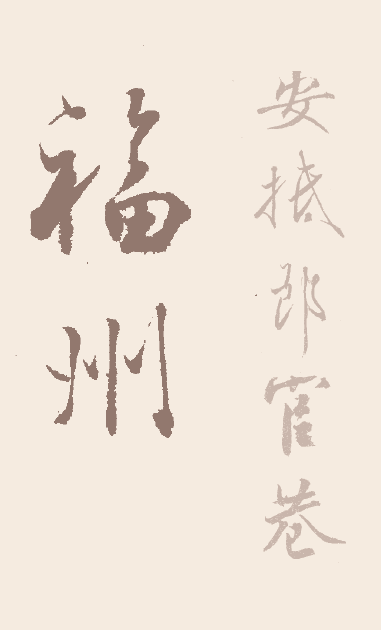 福州
安抵郎官巷